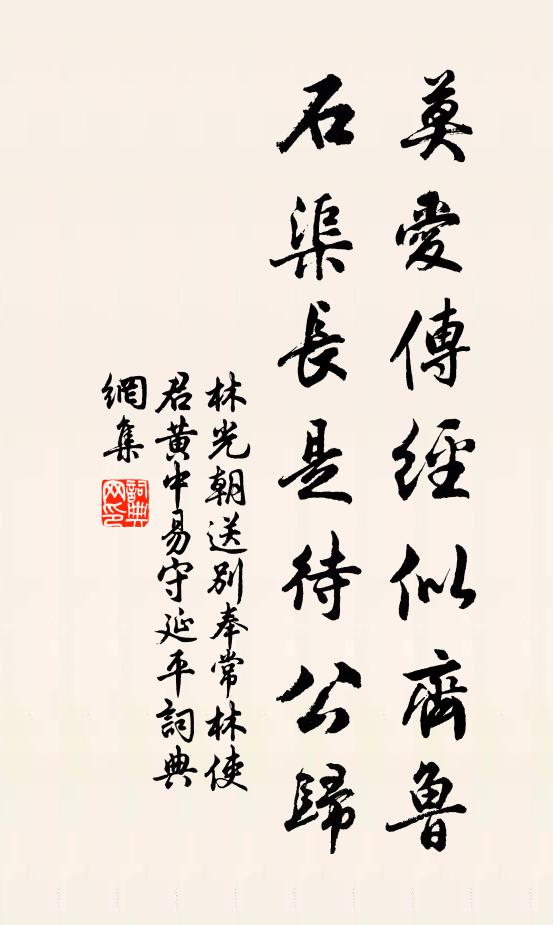 莫愛傳經似齊魯
石渠長是待公歸
林光朝送別奉常林使
君黃中易守延平詞典
網集
詞典網印